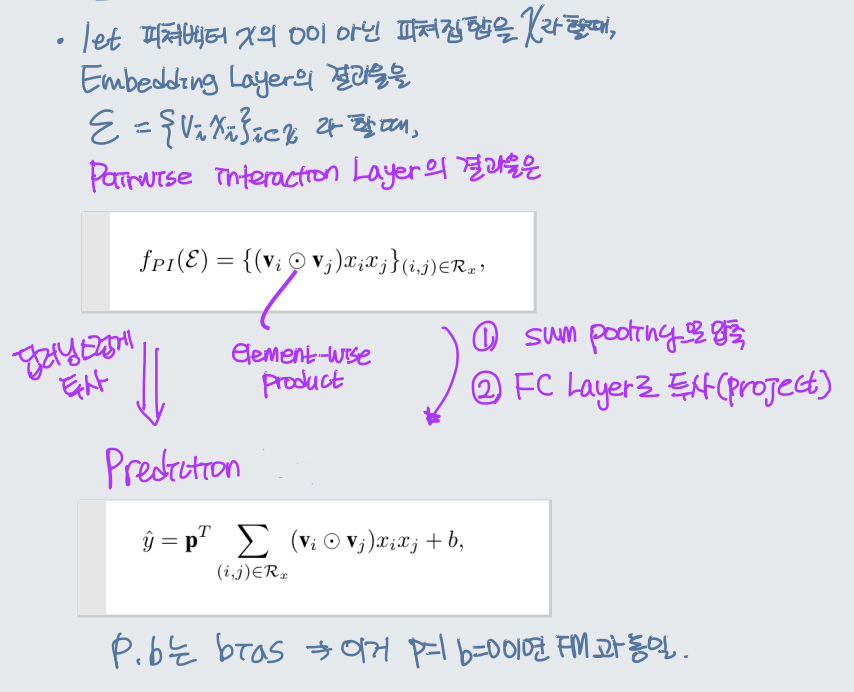 • let 피쳐벡터 x의 0이 아닌 피쳐집합을 𝒳라 할때,
Embedding Layer의 결과을을
ℰ = {v_i x_i}_{i∈𝒳} 라 할 때,
Pairwise interaction Layer의 결과을은
f_{PI}(ℰ) = {(v_i ⊙ v_j)x_i x_j}_{(i,j)∈ℛ_x},
투사
Element-wise
product
① sum pooling으로 압축
② FC Layer로 투사(project)
Prediction
ŷ = p^T ∑_{(i,j)∈ℛ_x} (v_i ⊙ v_j)x_i x_j + b,
P.b는 bias → 이거 p=1 b=0이면 FM과 동일.